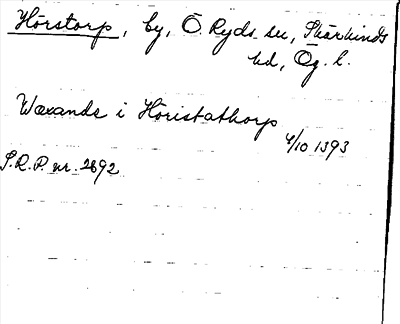 Hörstorp, by, Ö. Ryds sn, Skärkinds
hd, Ög. l.
Woxande i Höristathorp
4/10 1393
S.R.P. nr. 2892